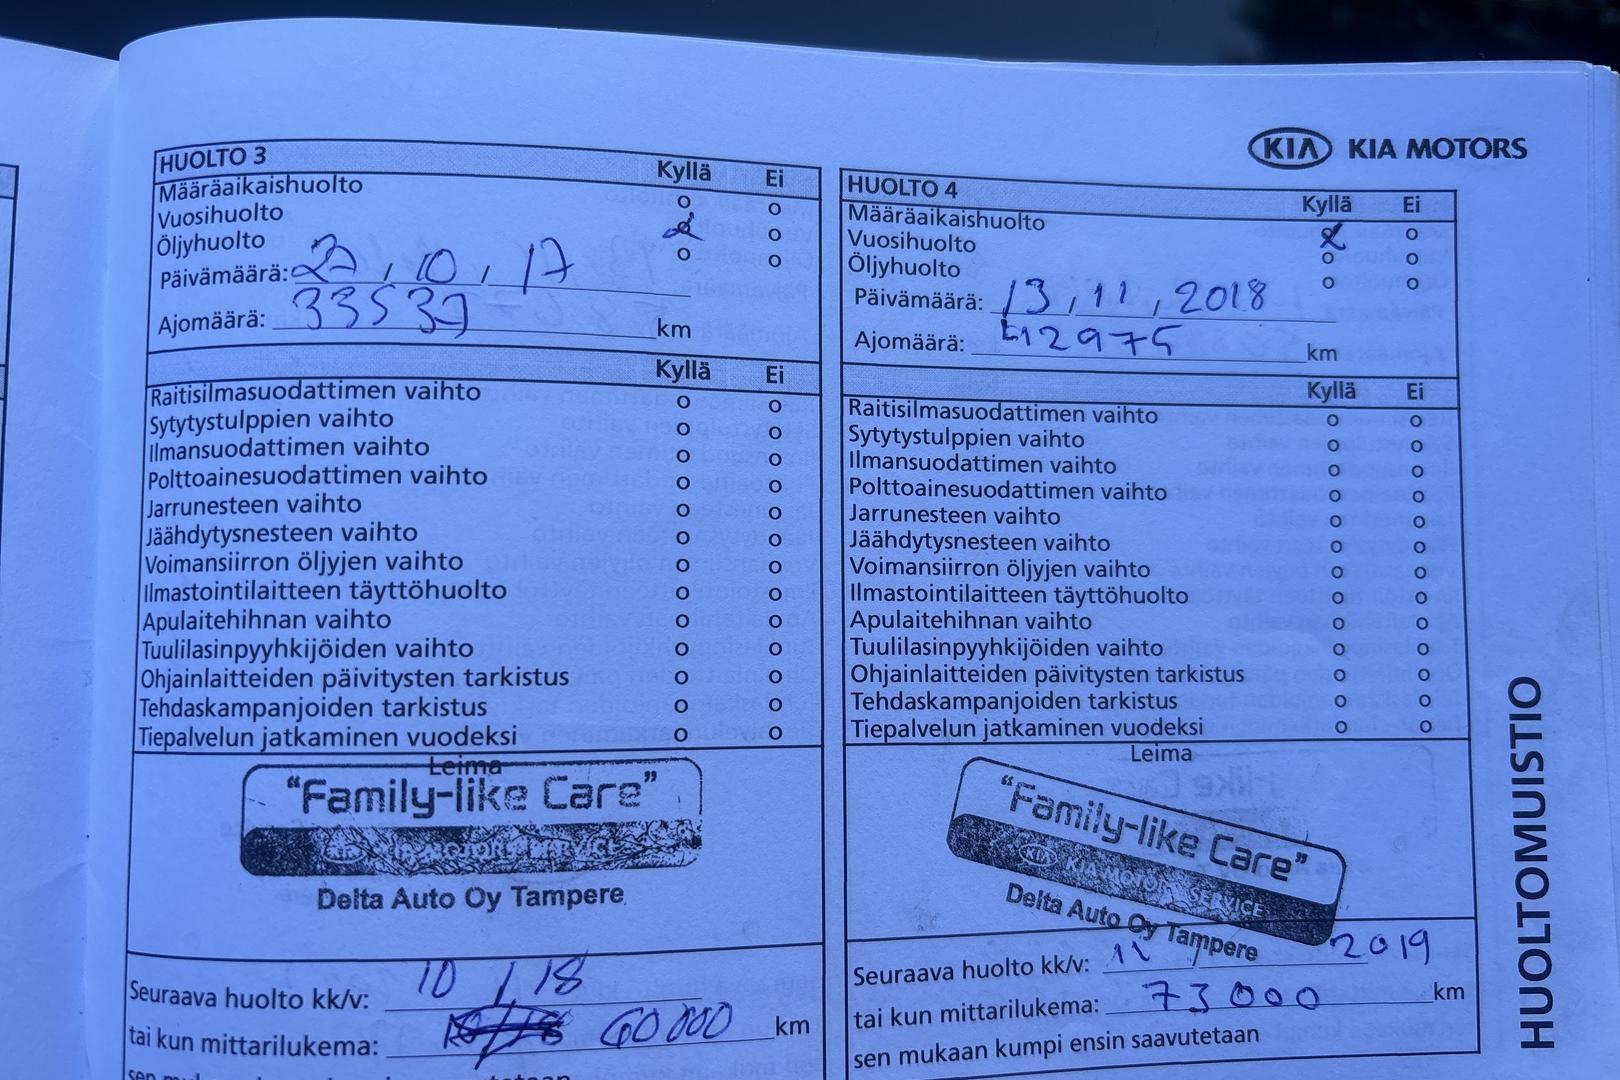 KIA KIA MOTORS
HUOLTO 3
Kyllä Ei
Määräaikaishuolto o o
Vuosihuolto o
Öljyhuolto o o
Päivämäärä: 27 / 10 / 17
Ajomäärä: 33537 km
Kyllä Ei
Raitisilmasuodattimen vaihto o o
Sytytystulppien vaihto o o
Ilmansuodattimen vaihto o o
Polttoainesuodattimen vaihto o o
Jarrunesteen vaihto o o
Jäähdytysnesteen vaihto o o
Voimansiirron öljyjen vaihto o o
Ilmastointilaitteen täyttöhuolto o o
Apulaitehihnan vaihto o o
Tuulilasinpyyhkijöiden vaihto o o
Ohjainlaitteiden päivitysten tarkistus o o
Tehdaskampanjoiden tarkistus o o
Tiepalvelun jatkaminen vuodeksi o o
Leima
"Family-like Care"
KIA KIA MOTORS SERVICE
Delta Auto Oy Tampere
Seuraava huolto kk/v: 10 / 18
tai kun mittarilukema: 60 000 km
HUOLTO 4
Kyllä Ei
Määräaikaishuolto o
Vuosihuolto o o
Öljyhuolto o o
Päivämäärä: 13 / 11 / 2018
Ajomäärä: 42975 km
Kyllä Ei
Raitisilmasuodattimen vaihto o o
Sytytystulppien vaihto o o
Ilmansuodattimen vaihto o o
Polttoainesuodattimen vaihto o o
Jarrunesteen vaihto o o
Jäähdytysnesteen vaihto o o
Voimansiirron öljyjen vaihto o o
Ilmastointilaitteen täyttöhuolto o o
Apulaitehihnan vaihto o o
Tuulilasinpyyhkijöiden vaihto o o
Ohjainlaitteiden päivitysten tarkistus o o
Tehdaskampanjoiden tarkistus o o
Tiepalvelun jatkaminen vuodeksi o o
Leima
"Family-like Care"
KIA KIA MOTORS SERVICE
Delta Auto Oy Tampere
Seuraava huolto kk/v: 11 / 2019
tai kun mittarilukema: 73000 km
sen mukaan kumpi ensin saavutetaan
HUOLTOMUISTIO